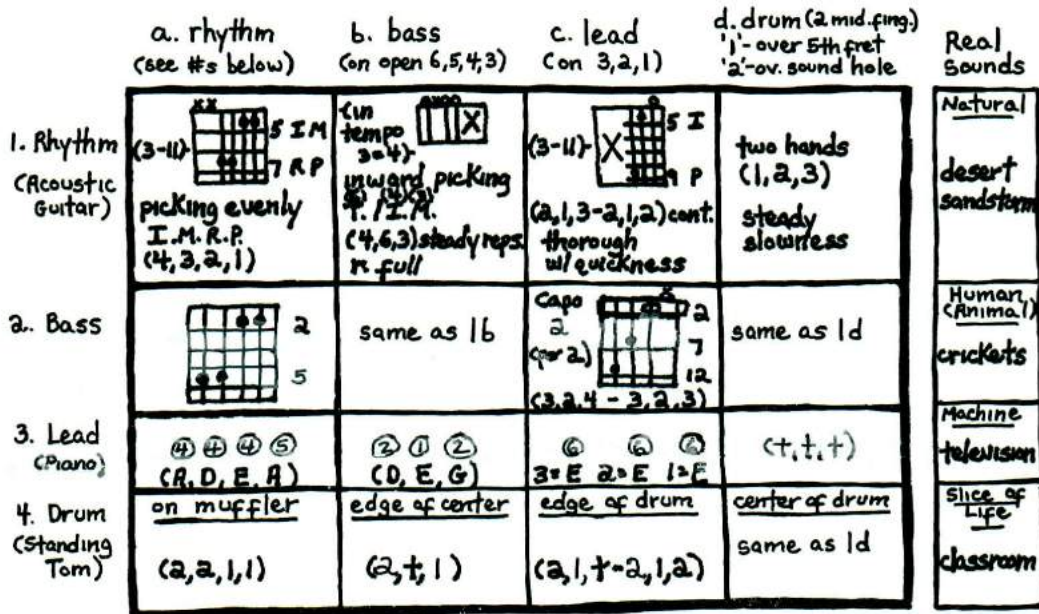 a. rhythm
(see #s below)
b. bass
(on open 6,5,4,3)
c. lead
(on 3,2,1)
d. drum (2 mid. fing.)
'1'- over 5th fret
'2'-ov. sound hole
Real
Sounds
1. Rhythm
(Acoustic
Guitar)
xx
(3-11)
5 I M
7 R P
picking evenly
I.M.R.P.
(4,3,2,1)
(in
tempo
3=4)
X
inward picking
T./I.M.
(4,6,3) steady reps.
in full
(3-11)
X
5 I
9 P
(2,1,3-2,1,2) cont.
thorough
w/ quickness
two hands
(1,2,3)
steady
slowness
Natural
desert
sandstorm
2. Bass
2
5
same as 1b
Capo
2
x
2
7
12
(3,2,4 - 3,2,3)
same as 1d
Human
(Animal)
crickets
3. Lead
(Piano)
4 4 4 5
(A, D, E, A)
2 1 2
(D, E, G)
6 6 6
3=E 2=E 1=E
(t, t, t)
Machine
television
4. Drum
(Standing
Tom)
on muffler
(2,2,1,1)
edge of center
(2,t,1)
edge of drum
(2,1,t-2,1,2)
center of drum
same as 1d
Slice of
Life
classroom